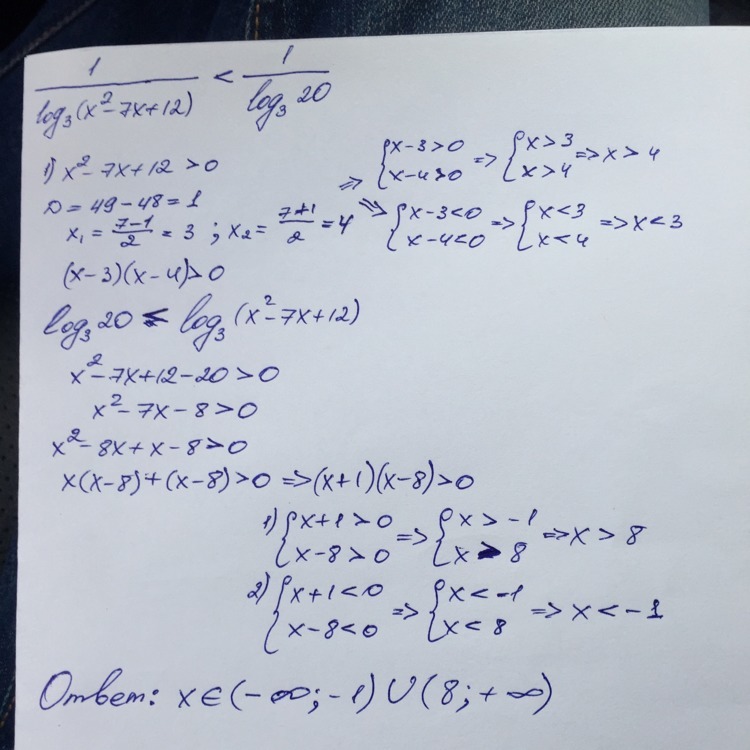 1/log₃(x²-7x+12) < 1/log₃20
1) x²-7x+12>0
D=49-48=1
x₁=(7-1)/2=3; x₂=(7+1)/2=4
(x-3)(x-4)>0
=> {x-3>0 x-4>0 => {x>3 x>4 => x>4
=> {x-3<0 x-4<0 => {x<3 x<4 => x<3
log₃20 < log₃(x²-7x+12)
x²-7x+12-20>0
x²-7x-8>0
x²-8x+x-8>0
x(x-8)+(x-8)>0 => (x+1)(x-8)>0
1) {x+1>0 x-8>0 => {x>-1 x>8 => x>8
2) {x+1<0 x-8<0 => {x<-1 x<8 => x<-1
Ответ: x∈(-∞;-1)∪(8;+∞)